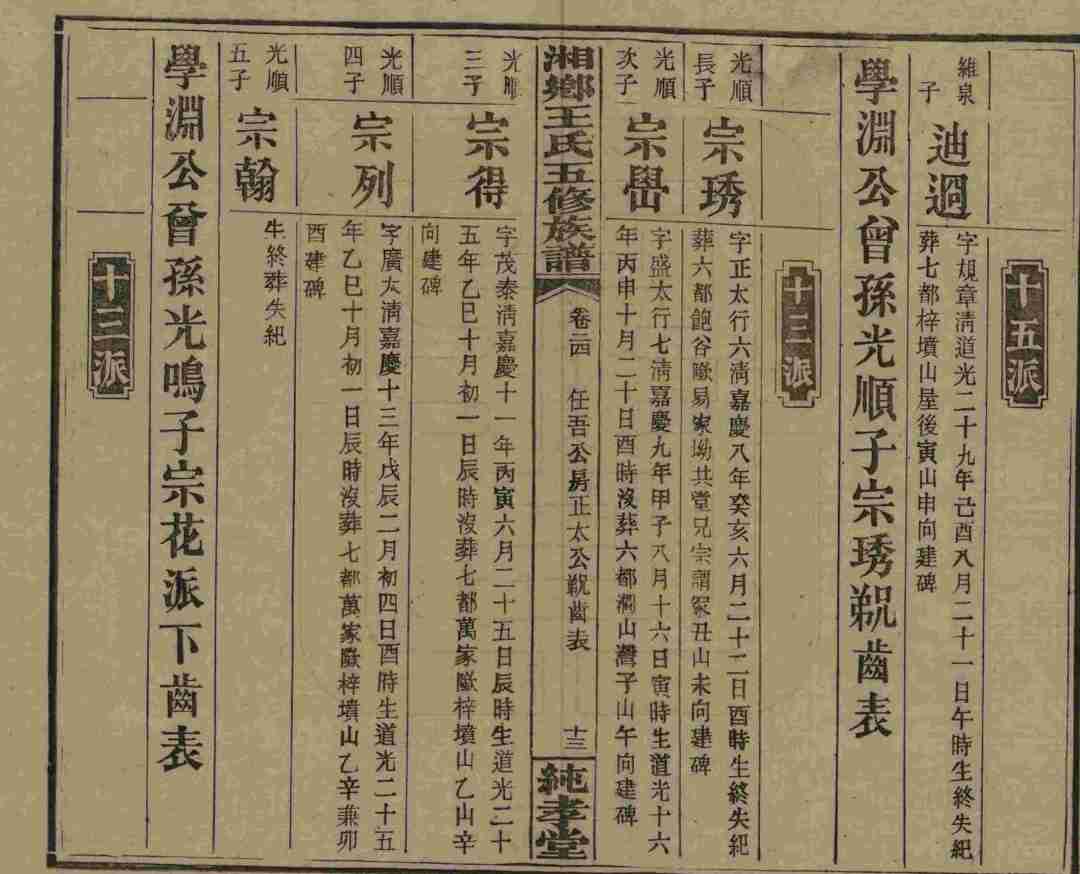 十五派
維泉
子
迪迥
字規章清道光二十九年己酉八月二十一日午時生終失紀
葬七都梓墳山屋後寅山申向建碑
學淵公曾孫光順子宗琇𣦸齒表
十三派
光順
長子
宗琇
字正太行六清嘉慶八年癸亥六月二十二日酉時生終失紀
葬六都鮑谷隞易家坳共堂兄宗謂冢丑山未向建碑
光順
次子
宗嶨
字盛太行七清嘉慶九年甲子八月十六日寅時生道光十六
年丙申十月二十日酉時沒葬六都澗山灣子山午向建碑
湘鄉王氏五修族譜
卷二四
任吾公房正太公𣦸齒表
十三
純孝堂
光順
三子
宗得
字茂泰清嘉慶十一年丙寅六月二十五日辰時生道光二十
五年乙巳十月初一日辰時沒葬七都萬家隞梓墳山乙山辛
向建碑
光順
四子
宗列
字廣太清嘉慶十三年戊辰二月初四日酉時生道光二十五
年乙巳十月初一日辰時沒葬七都萬家隞梓墳山乙辛兼卯
酉建碑
光順
五子
宗翰
生終葬失紀
學淵公曾孫光鳴子宗花派下齒表
十三派